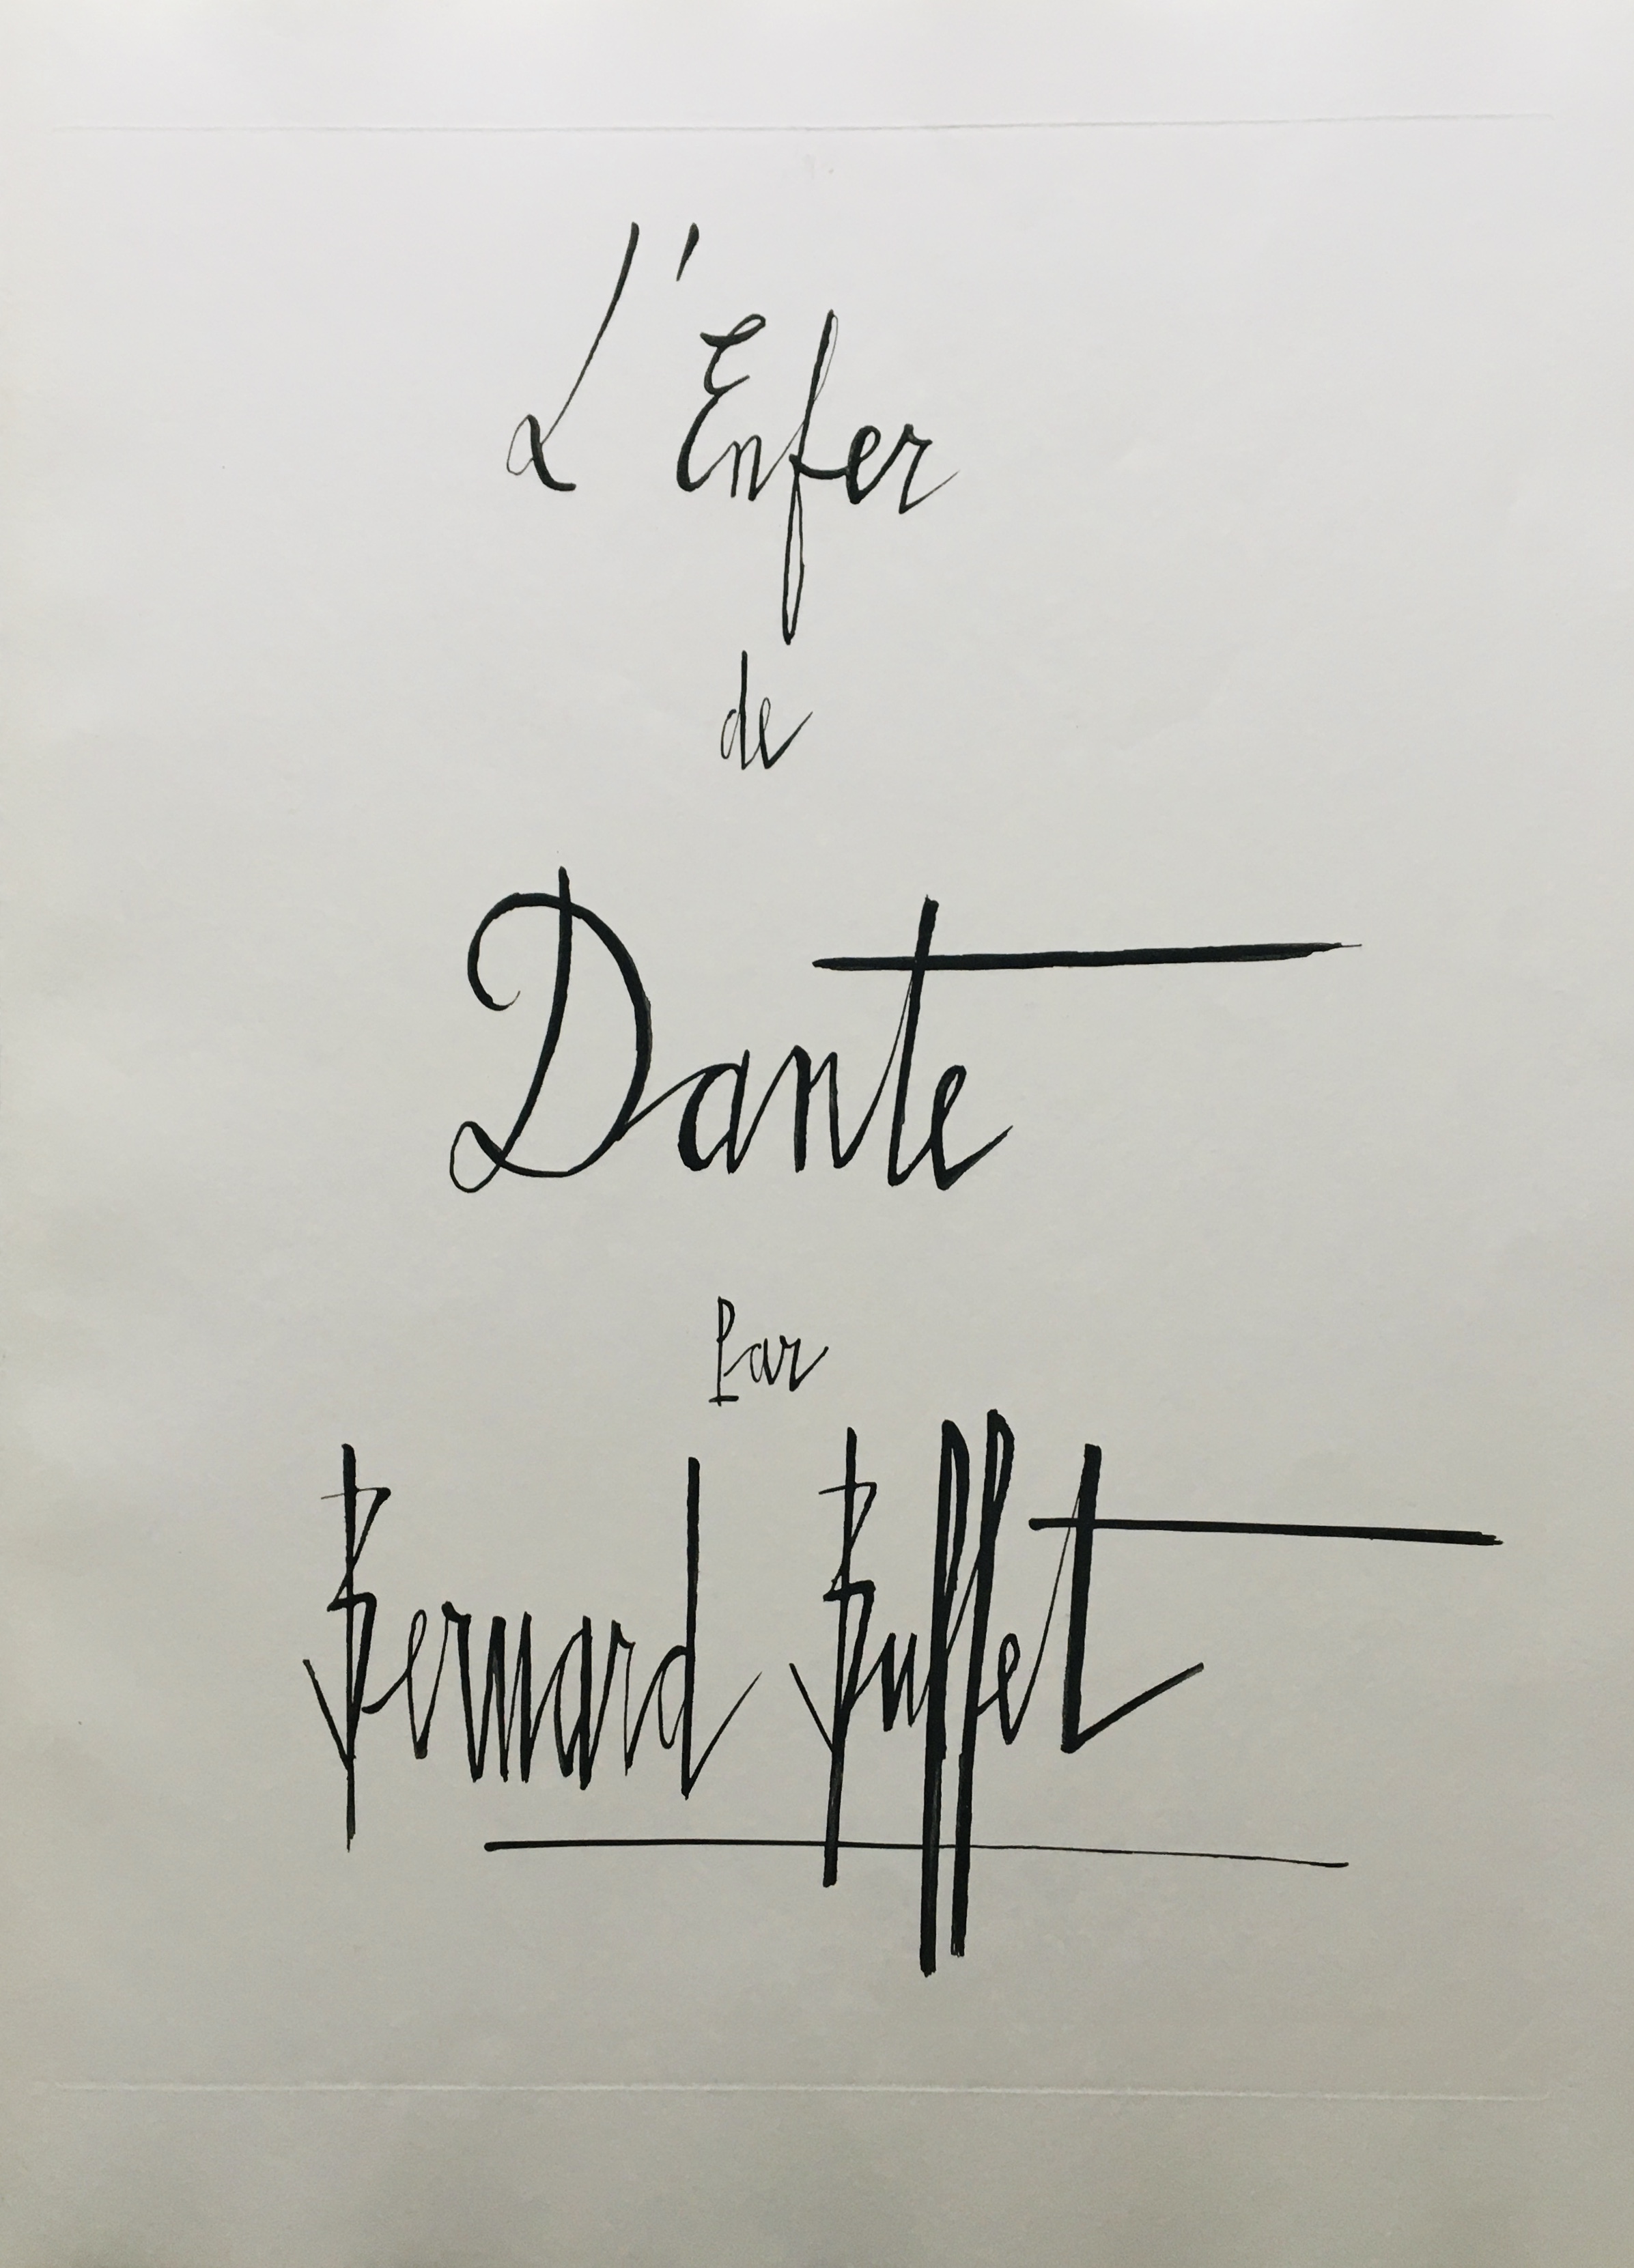 L'Enfer
de
Dante
Par
Bernard Buffet